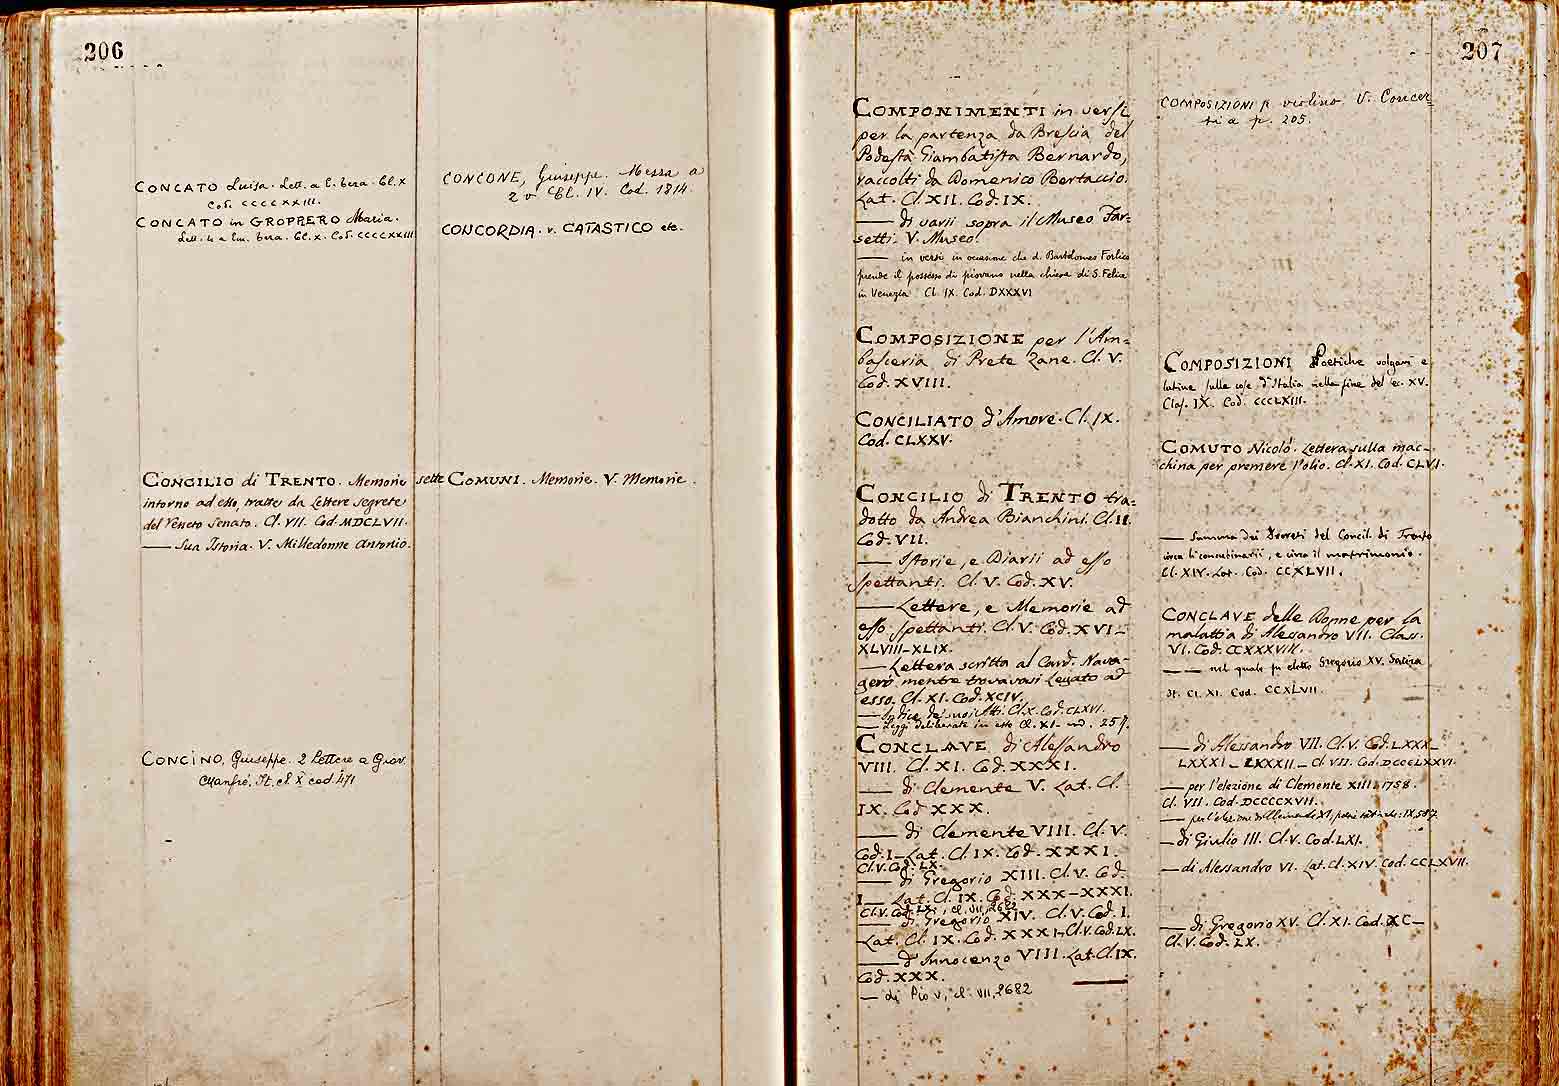 206
CONCATO Luisa. Lett. a E. Teza. Cl. X
Cod. CCCCXXIII.
CONCATO in GROPPERO Maria.
Lett. 4 a Em. Teza. Cl. X. Cod. CCCCXXIII
CONCILIO di TRENTO. Memorie
intorno ad esso tratte da Lettere segrete
del Veneto Senato. Cl. VII. Cod. MDCLVII.
— Sua Istoria. V. Milledonne Antonio.
CONCINO, Giuseppe. 2 Lettere a Giov.
Manfré. It. cl X cod. 471
CONCONE, Giuseppe. Messa a
2 v Cl. IV. Cod. 1814.
CONCORDIA. v. CATASTICO etc.
sette COMUNI. Memorie. V. Memorie.
207
COMPONIMENTI in versi
per la partenza da Brescia del
Podestà Giambatista Bernardo,
raccolti da Domenico Bertaccio.
Lat. Cl. XII. Cod. IX.
— di varii sopra il Museo Far=
setti. V. Museo.
— in versi in occasione che d. Bartolomeo Forlico
prende il possesso di piovano nella chiesa di S. Felice
in Venezia Cl. IX. Cod. DXXXVI
COMPOSIZIONE per l'Am=
basceria di Prete Zane. Cl. V.
Cod. XVIII.
CONCILIATO d'Amore. Cl. IX.
Cod. CLXXV.
CONCILIO di TRENTO tra=
dotto da Andrea Bianchini. Cl. II.
Cod. VII.
— Istorie, e Diarii ad esso
spettanti. Cl. V. Cod. XV.
— Lettere, e Memorie ad
esso spettanti. Cl. V. Cod. XVI–
XLVIII–XLIX.
— Lettera scritta al Card. Nava-
gero mentre trovavasi Legato ad
esso. Cl. XI. Cod. XCIV.
— Indice de' suoi Atti. Cl. X. Cod. CLXVI.
— Leggi deliberate in esso Cl. XI– cod. 257.
CONCLAVE di Alessandro
VIII. Cl. XI. Cod. XXXI.
— di Clemente V. Lat. Cl.
IX. Cod XXX.
— di Clemente VIII. Cl. V.
Cod. I–Lat. Cl. IX. Cod. XXXI.
Cl. V. Cod. LX.
— di Gregorio XIII. Cl. V. Cod.
I– Lat. Cl. IX. Cod. XXX–XXXI.
Cl. V. Cod. LX., cl. VII, 2682
— di Gregorio XIV. Cl. V. Cod. I.
–Lat. Cl. IX. Cod. XXXI–Cl. V. Cod. LX.
— d'Innocenzo VIII. Lat. Cl. IX.
Cod. XXX.
— di Pio V, cl. VII, 2682
COMPOSIZIONI p. violino V. Concer=
ti a p. 205.
COMPOSIZIONI Poetiche volgari e
latine sulle cose d'Italia nella fine del sec. XV.
Clas. IX. Cod. CCCLXIII.
COMUTO Nicolò. Lettera sulla mac-
china per premere l'olio. Cl. XI. Cod. CLVI.
— Summa dei Decreti del Concil. di Trento
circa li concubinarii, e circa il matrimonio.
Cl. XIV. Lat. Cod. CCXLVII.
CONCLAVE delle Donne per la
malattia di Alessandro VII. Class.
VI. Cod. CCXXXVIII.
— — nel quale fu eletto Gregorio XV. Satira
It. Cl. XI. Cod. CCXLVII.
— di Alessandro VII. Cl. V. Cod. LXXX–
LXXXI–LXXXII–Cl. VII. Cod. DCCCLXXVI.
— per l'elezione di Clemente XIII. 1758.
Cl. VII. Cod. DCCCCXVII.
— per l'elezione di Clemente XI, IX, 587.
— di Giulio III. Cl. V. Cod. LXI.
— di Alessandro VI. Lat. Cl. XIV. Cod. CCLXVII.
— di Gregorio XV. Cl. XI. Cod. XC–
Cl. V. Cod. LX.